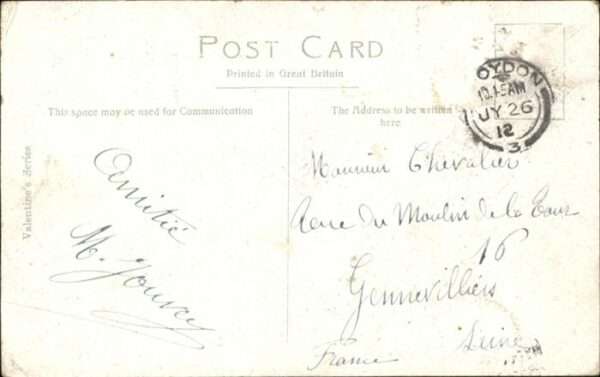 POST CARD
Printed in Great Britain
This space may be used for Communication
The Address to be written
here.
Valentine's Series
OYDON
10.15AM
JY 26
12
3
Amitié
M.
Monsieur Chevalier
Rue du Moulin de la Tour
16
Gennevilliers
Seine
France